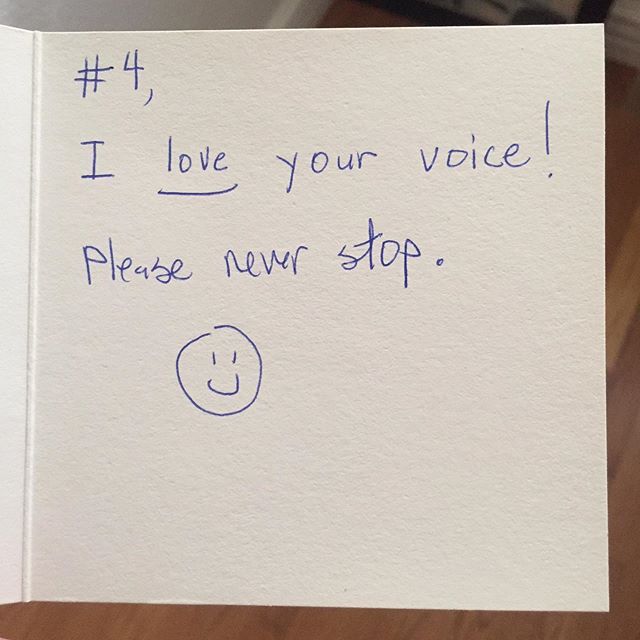 #4,
I love your voice!
Please never stop.